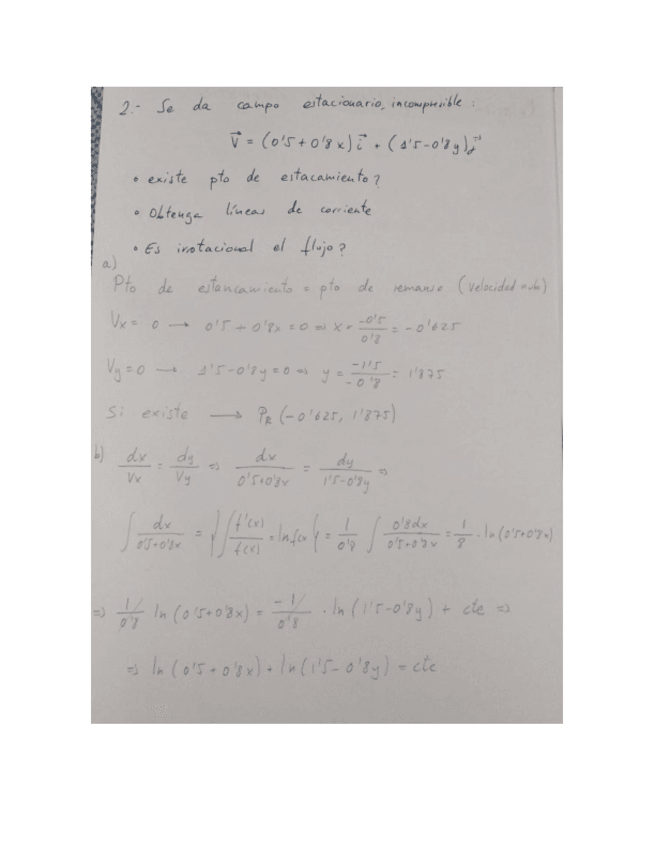 2.- Se da campo estacionario, incompresible :
V⃗ = (0'5 + 0'8x) i⃗ + (1'5-0'8y) j⃗
• existe pto de estacamiento?
• Obtenga líneas de corriente
• Es irrotacional el flujo?
a)
Pto de estancamiento = pto de remanso (velocidad nula)
Vx = 0 → 0'5 + 0'8x = 0 ⇒ x = -0'5/0'8 = -0'625
Vy = 0 → 1'5-0'8y = 0 ⇒ y = -1'5/-0'8 = 1'875
Si existe → P_R (-0'625, 1'875)
b) dx/Vx = dy/Vy ⇒ dx/0'5+0'8x = dy/1'5-0'8y ⇒
∫ dx/0'5+0'8x = { ∫ f'(x)/f(x) = ln f(x) } = 1/0'8 ∫ 0'8dx/0'5+0'8x = 1/8 · ln (0'5+0'8x)
⇒ 1/0'8 ln (0'5+0'8x) = -1/0'8 · ln (1'5-0'8y) + cte ⇒
⇒ ln (0'5 + 0'8x) + ln (1'5 - 0'8y) = cte